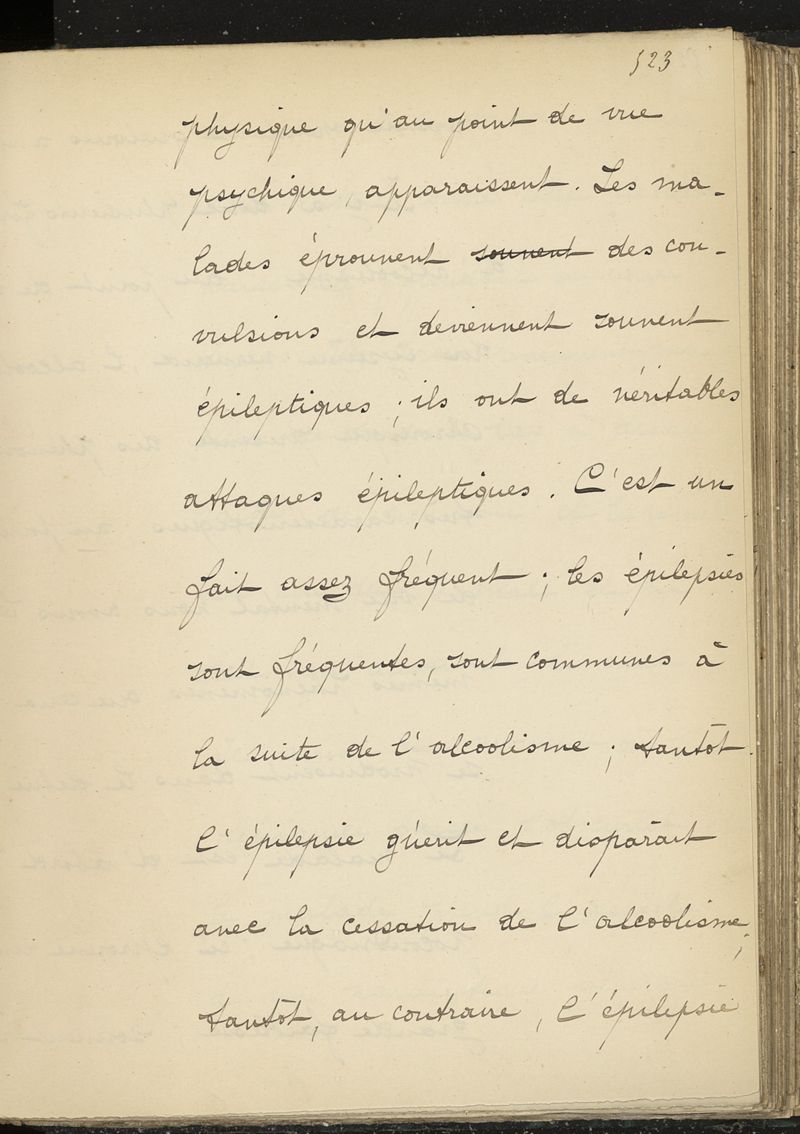 523
physique qu'au point de vue
psychique, apparaissent. Les ma-
lades éprouvent souvent des con-
vulsions et deviennent souvent
épileptiques ; ils ont de véritables
attaques épileptiques. C'est un
fait assez fréquent ; les épilepsies
sont fréquentes, sont communes à
la suite de l'alcoolisme ; tantôt
l'épilepsie guérit et disparaît
avec la cessation de l'alcoolisme ;
tantôt, au contraire, l'épilepsie